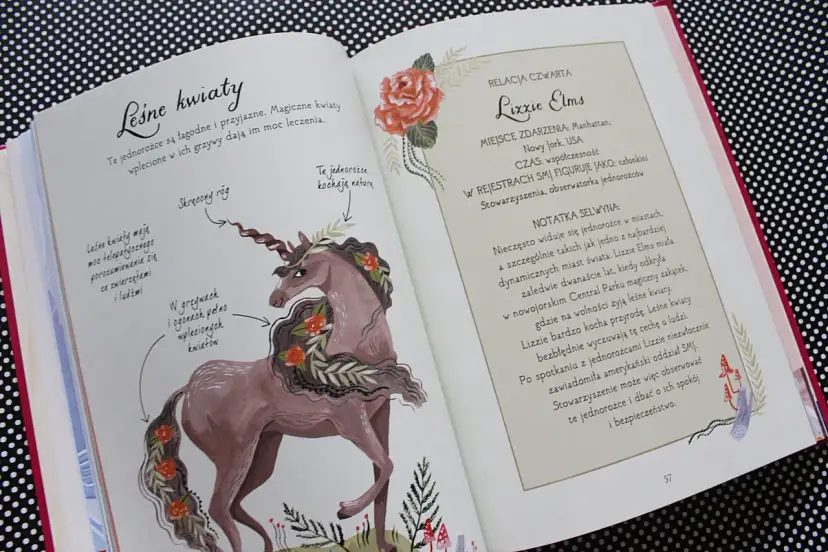 Leśne kwiaty
Te jednorożce są łagodne i przyjazne. Magiczne kwiaty
wplecione w ich grzywy dają im moc leczenia.
Skręcony róg
Te jednorożce
kochają naturę
Leśne kwiaty mają
moc telepatycznego
porozumiewania się
ze zwierzętami
i ludźmi
W grzywach
i ogonach pełno
wplecionych
kwiatów
RELACJA CZWARTA
Lizzie Elms
MIEJSCE ZDARZENIA: Manhattan,
Nowy Jork, USA
CZAS: współczesność
W REJESTRACH SMJ FIGURUJE JAKO: członkini
Stowarzyszenia, obserwatorka jednorożców
NOTATKA SELWYNA:
Nieczęsto widuje się jednorożce w miastach,
a szczególnie takich jak jedno z najbardziej
dynamicznych miast świata. Lizzie Elms miała
zaledwie dwanaście lat, kiedy odkryła
w nowojorskim Central Parku magiczny zakątek,
gdzie na wolności żyją leśne kwiaty.
Lizzie bardzo kocha przyrodę. Leśne kwiaty
bezbłędnie wyczuwają tę cechę u ludzi.
Po spotkaniu z jednorożcami Lizzie niezwłocznie
zawiadomiła amerykański oddział SMJ.
Stowarzyszenie może więc obserwować
te jednorożce i dbać o ich spokój
i bezpieczeństwo.
57